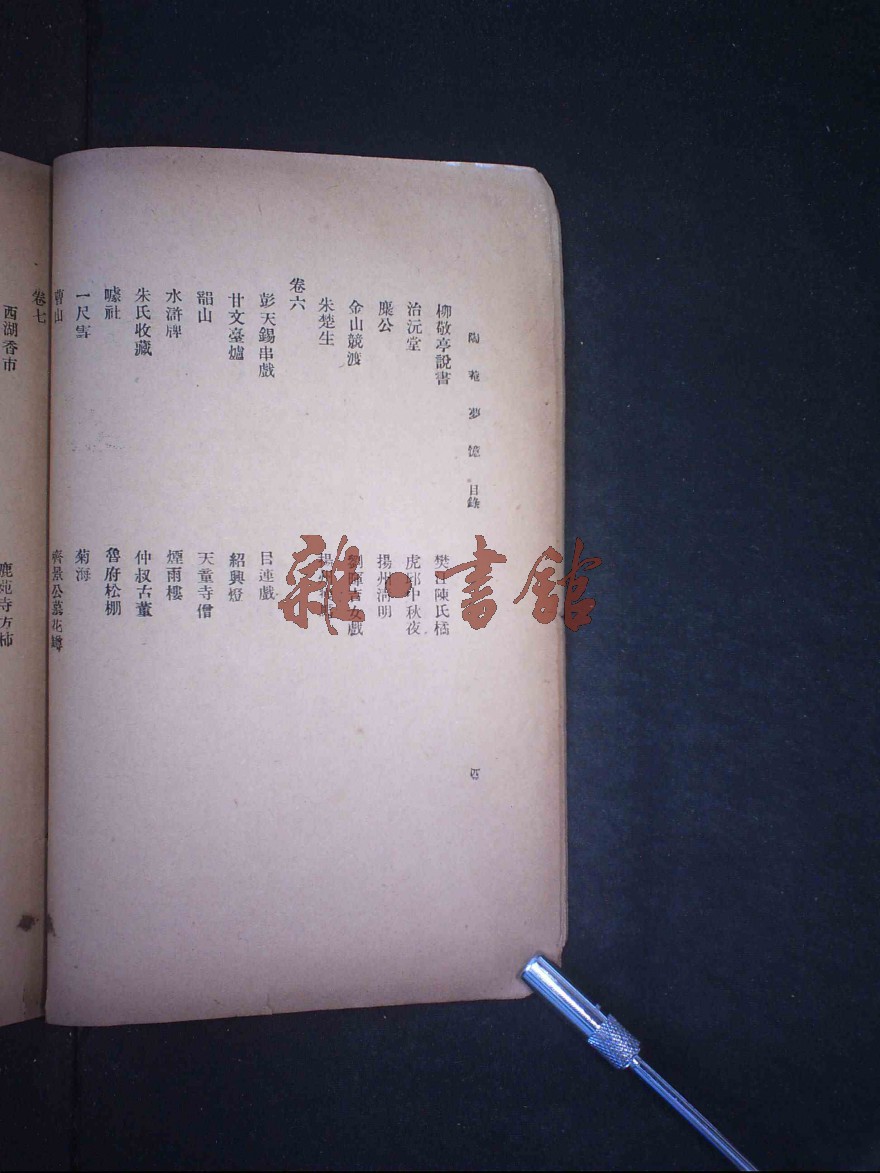 陶菴夢憶 目錄
四
柳敬亭說書 樊江陳氏橘
治沅堂 虎邱中秋夜
麋公 揚州清明
金山競渡 劉暉吉女戲
朱楚生 揚州
卷六
彭天錫串戲 目連戲
甘文臺爐 紹興燈
韶山 天童寺僧
水滸牌 煙雨樓
朱氏收藏 仲叔古董
噱社 魯府松棚
一尺雪 菊海
曹山 齊景公墓花罇
卷七
西湖香市 鹿苑寺方柿
雜·書館